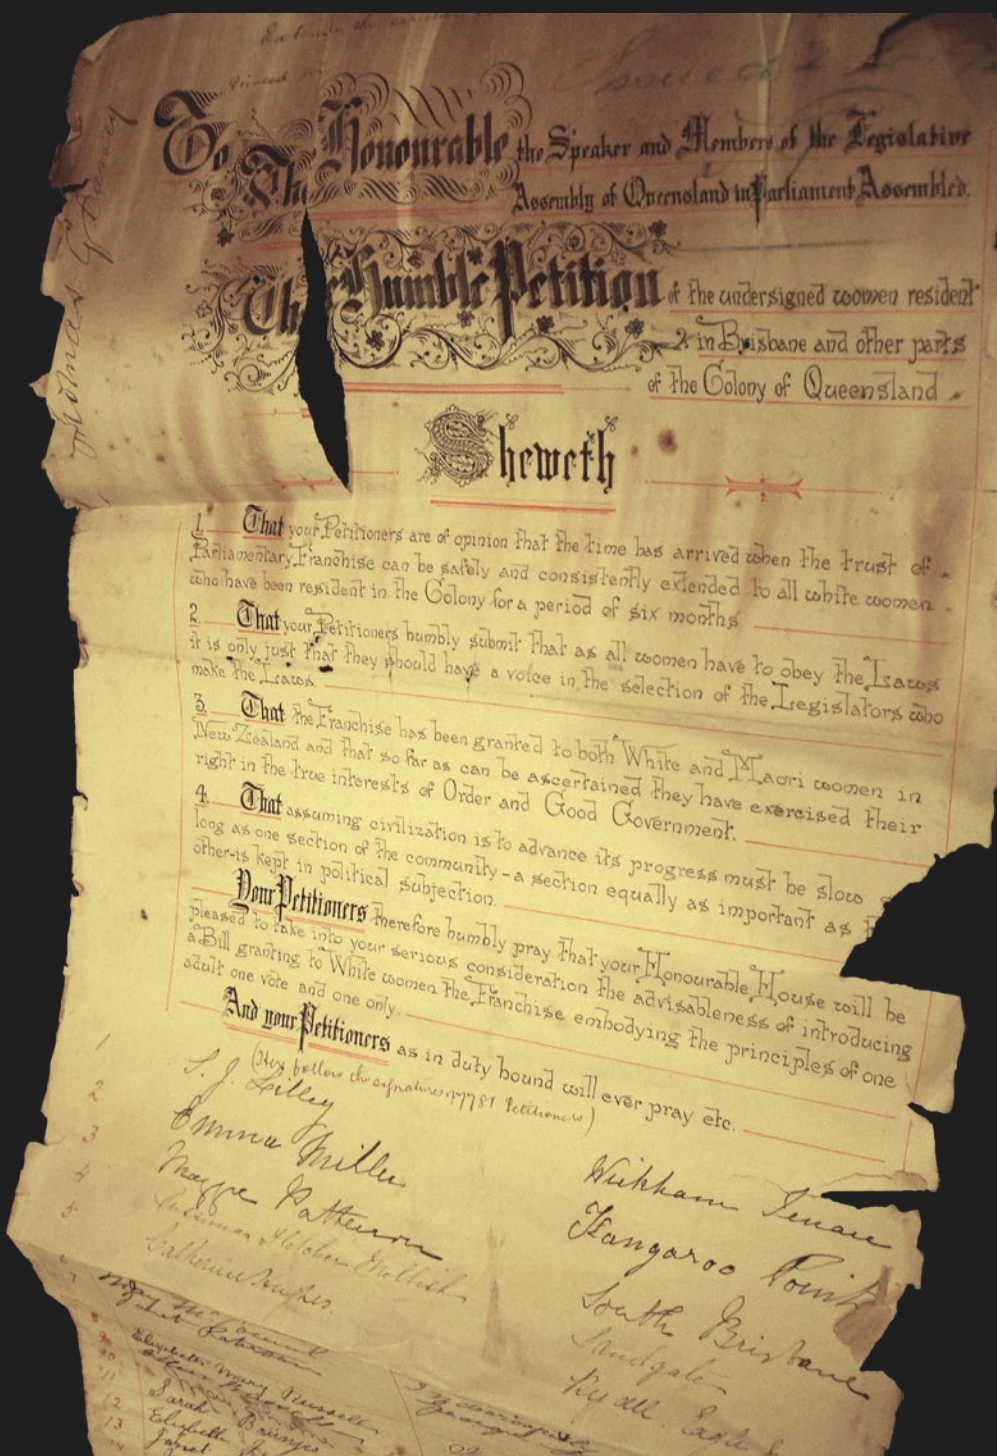 To The Honourable the Speaker and Members of the Legislative
Assembly of Queensland in Parliament Assembled.
The Humble Petition of the undersigned women resident
in Brisbane and other parts
of the Colony of Queensland
Sheweth
1. That your Petitioners are of opinion that the time has arrived when the trust of
Parliamentary Franchise can be safely and consistently extended to all white women
who have been resident in the Colony for a period of six months
2. That your Petitioners humbly submit that as all women have to obey the Laws
it is only just that they should have a voice in the selection of the Legislators who
make the Laws.
3. That the Franchise has been granted to both White and Maori women in
New Zealand and that so far as can be ascertained they have exercised their
right in the true interests of Order and Good Government.
4. That assuming civilization is to advance its progress must be slow
long as one section of the community - a section equally as important as
other-is kept in political subjection.
Your Petitioners therefore humbly pray that your Honourable House will be
pleased to take into your serious consideration the advisableness of introducing
a Bill granting to White women the Franchise embodying the principles of one
adult one vote and one only.
And your Petitioners as in duty bound will ever pray etc.
(Here follow the signatures of 7781 Petitioners)
1 S. J. Lilley Wickham Terrace
2 Emma Miller Kangaroo Point
3 Maggie Patterson South Brisbane
4 Fletcher Mellish Sandgate
5 Catherine Hughes
Elizabeth Mary Russell
Sarah
12 Elizabeth
13 Janet